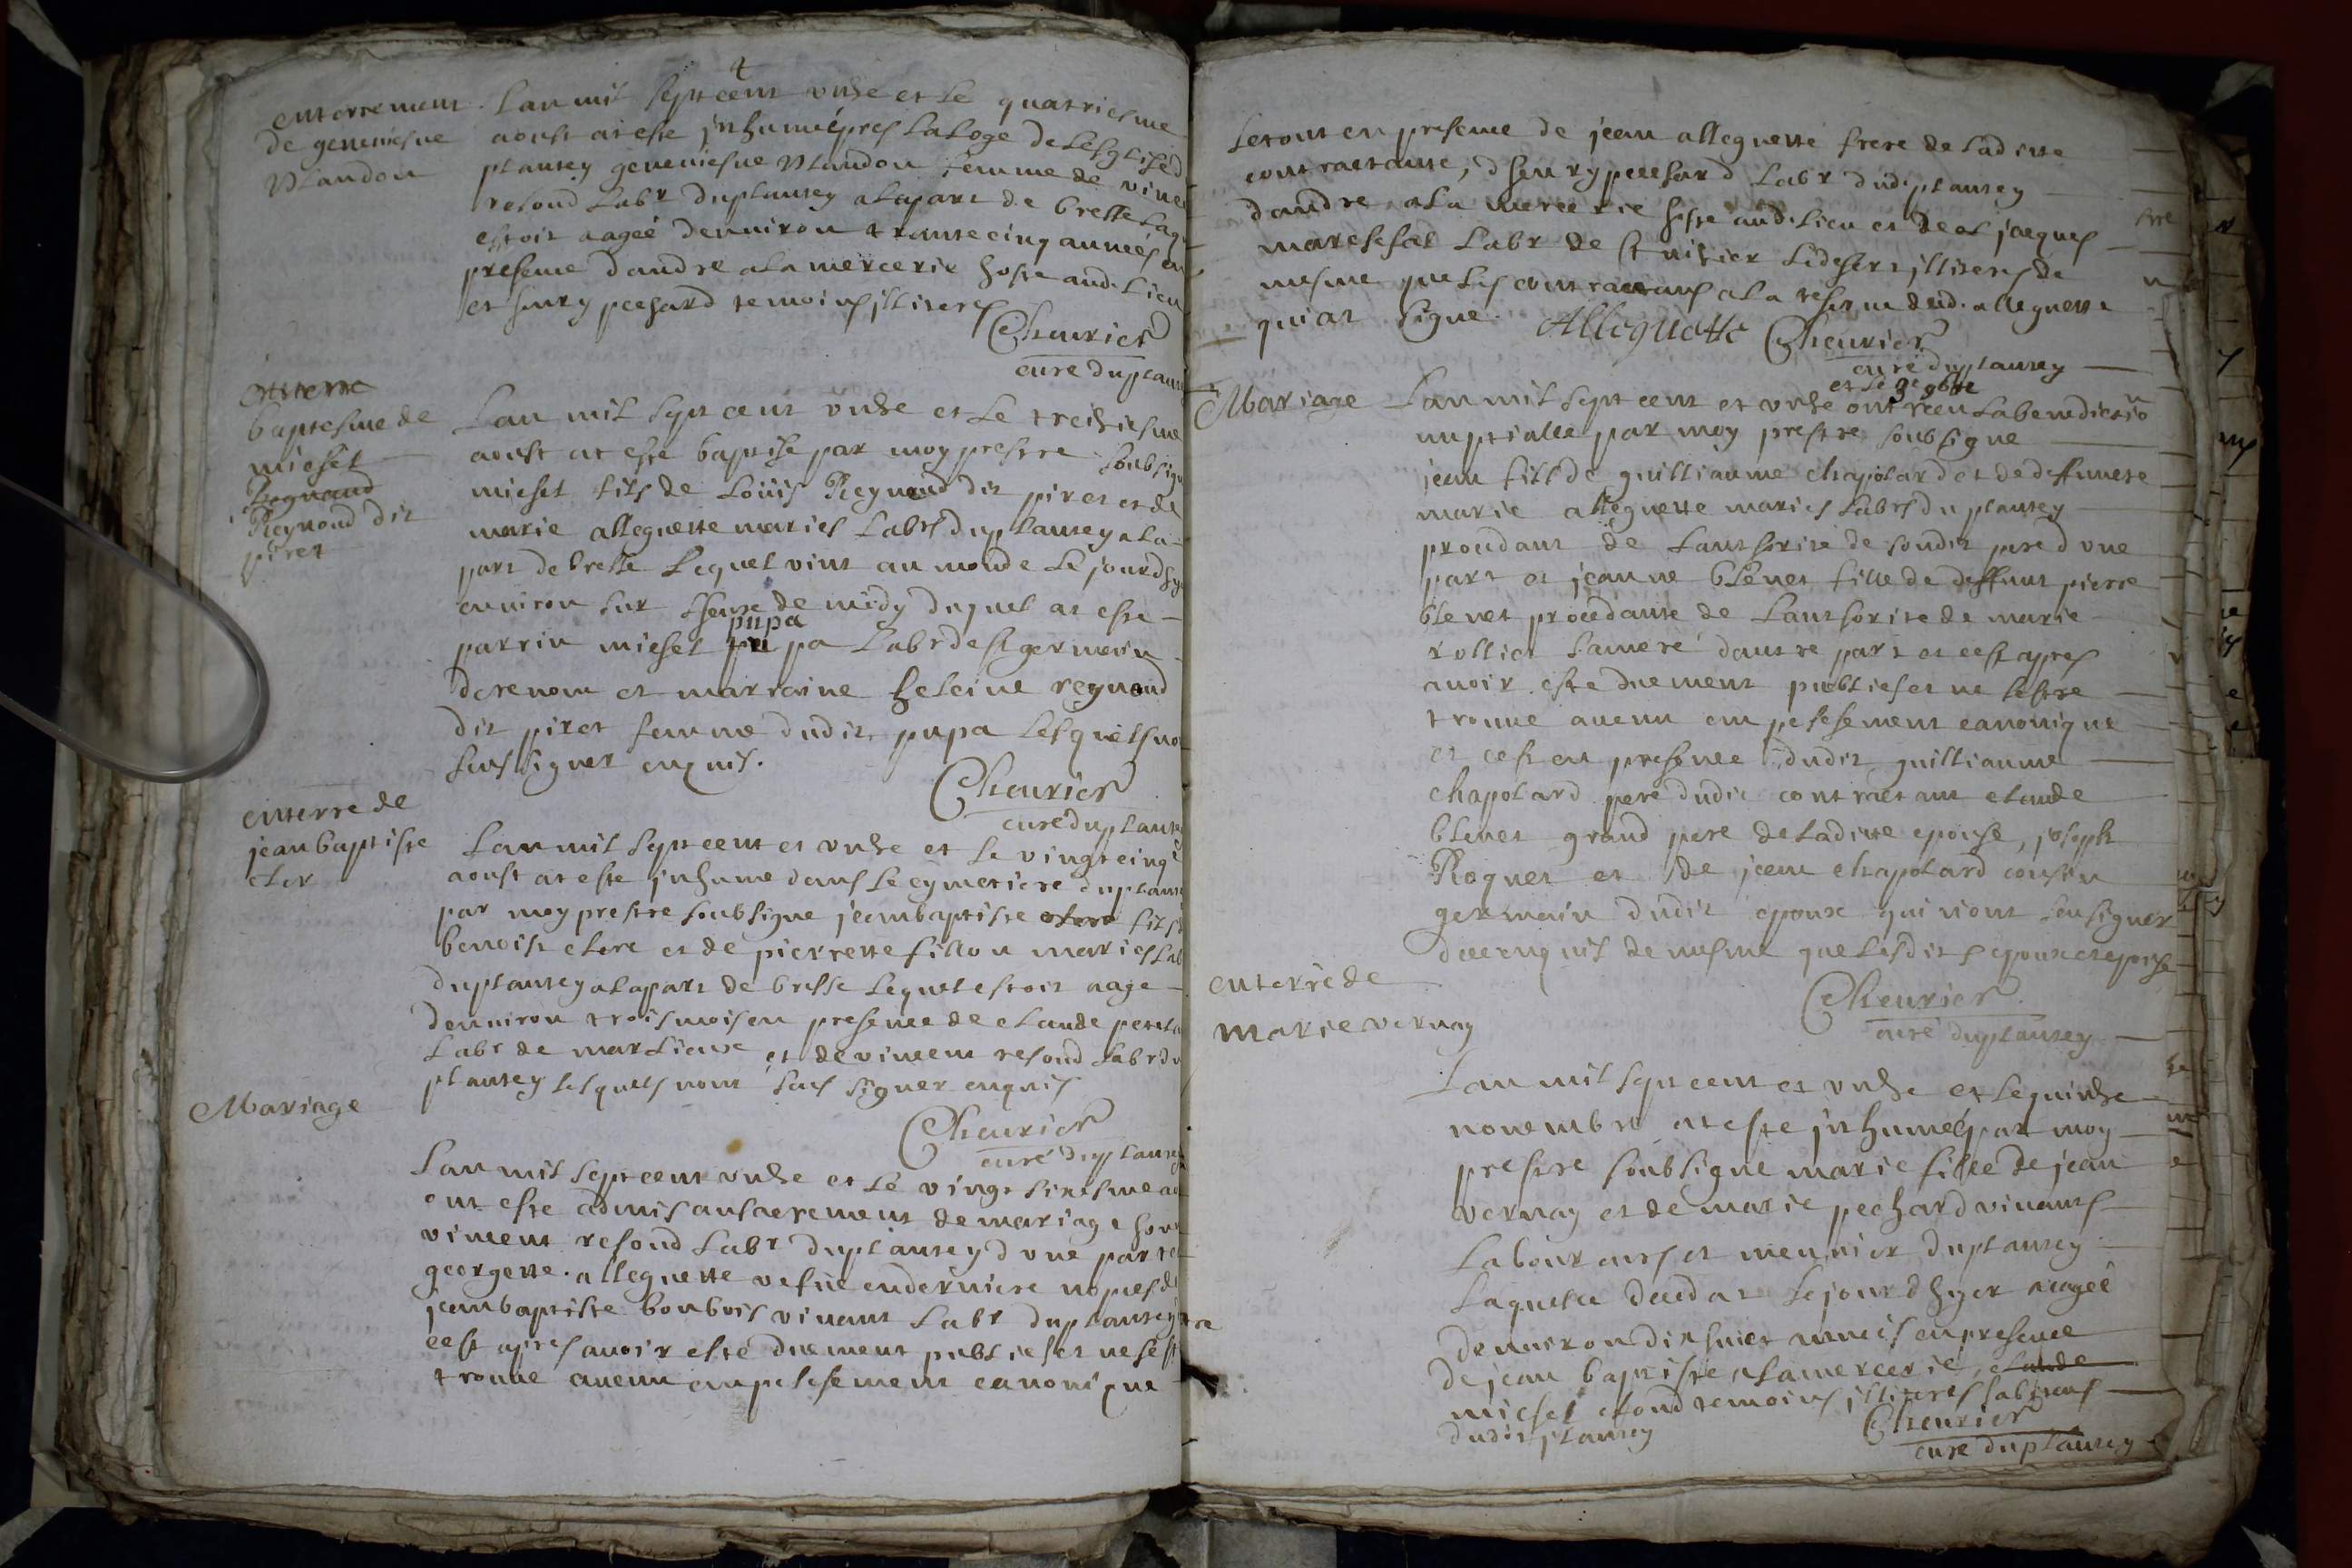 4
enterrement
de geneviesve
Mandon
Lan mil sept cent unze et le quatriesme
aoust at este inhumée pres la loge de lesglise d
plantey geneviesve Mandon femme de vince
refond labr duplantey a la part de bresse laq
estoit aagée denviron trante cinq années en
presence dandre alamercerie hoste aud. lieu
et henry pechard temoins illiteres
Chevrier
curé duplant
enterre
baptesme de
michel
Regnaud
Reynoud dit
piret
Lan mil sept cent unze et le treiziesme
aoust at este baptise par moy prestre soubsign
michel fils de Loüis Reynoud dit piret et de
marie alleguette mariés labrs duplantey a la
part de bresse Lequel vint au monde le jourdhy
environ sur lheure de midy duquel at este
pupa
parrin michel pu pa labr de st germain
derenom et marraine heleine reynoud
dit piret femme dudit pupa lesquels no
sceus signer enquis.
Chevrier
curé duplante
enterre de
jean baptiste
cler
Lan mil sept cent et unze et le vingt cinq
aoust at este inhume dans le cymetiere duplante
par moy prestre soubsigne jeanbaptiste clere fils
benoist clere et de pierrette fillon mariés lab
duplantey a la part de bresse lequel estoit aage
denviron trois mois en presence de claude petit
labr de marlieux et de vincent refond labr du
plantey lesquels nont sceus signer enquis
Chevrier
curé duplantey
Mariage
Lan mil sept cent unze et le vingt sixiesme ao
ont este admis au sacrement de mariage hon
vincent refond labr duplantey dune part et
georgette alleguette vefue en derniere nopces de
jeanbaptiste bonbois vivant labr duplantey
cest apres avoir esté duement publies et ne sest
trouve aucun empeschement canonique
Le tout en presence de jean alleguette frere de ladite
contractante, dhenry pechard labr dudiplantey
dandre alamercerie hoste audit lieu et de jacques
mareschal labr de st nisier le desert illiteres de
mesme que les contractans a la reserve dud. alleguette
qui at signe. Alleguette Chevrier
curé duplantey
Mariage
et le 9e 9bre
Lan mil sept cent et unze ont receu la benediction
nuptialle par moy prestre soubsigne
jean fils de guilliaume chapolard et de deffuncte
marie alleguette mariés labrs duplantey
procedant de lauthorite de sondit pere dune
part et jeanne blenet fille de deffunt pierre
blenet procedante de lauthorite de marie
rollier sa mere dautre part et cest apres
avoir este duement publies et ne sestre
trouve aucun empeschement canonique
et cest en presence dudit guilliaume
chapolard pere dudit contractant claude
blenet grand pere de ladite epouse, joseph
Roguet et de jean chapolard cousin
germain dudit epoux qui n'ont sceu signer
de ce enquis de mesme que lesdits epoux et epouse
Chevrier
curé duplantey
enterré de
marie vernay
Lan mil sept cent et unze et le quinze
novembre at este inhumée par moy
prestre soubsigne marie fille de jean
vernay et de marie pechard vivants
laboureurs et meunier duplantey
laquelle decedat le jourdhyer aagée
denviron dixhuict années en presence
de jean baptiste alamercerie, claude
michel refond temoins illiteres habitans
dudit plantey
Chevrier
curé duplantey